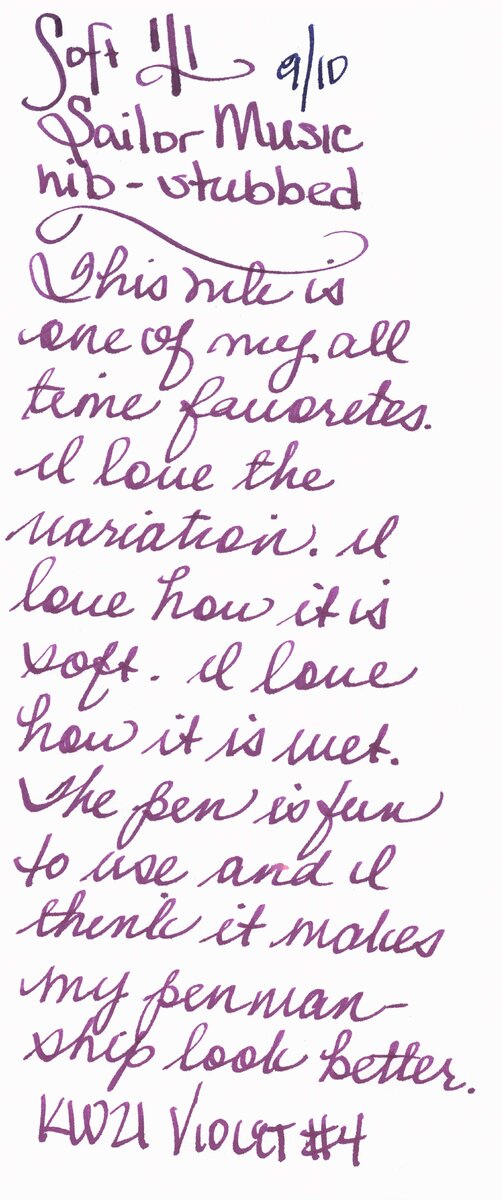 Soft 1.1 9/10
Sailor Music
nib - stubbed
This nib is
one of my all
time favoretes.
I love the
variation. I
love how it is
soft. I love
how it is wet.
The pen is fun
to use and I
think it makes
my penman-
ship look better.
KWZI VIOLET #4